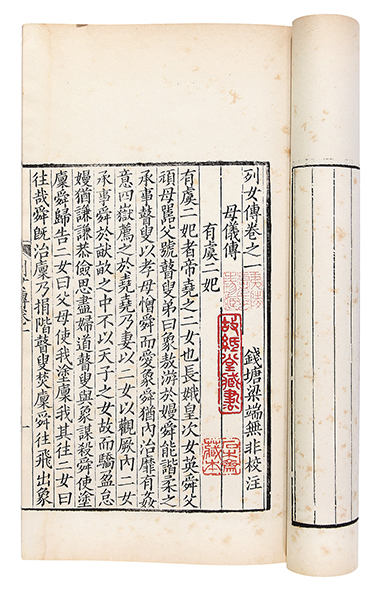 列女傳卷之一
錢塘梁端無非校注
母儀傳
有虞二妃
故紙堂藏書
藏本
有虞二妃者帝堯之二女也長娥皇次女英舜父
頑母嚚父號瞽叟弟曰象敖游於嫚舜能諧柔之
承事瞽叟以孝母憎舜而愛象舜猶內治靡有姦
意四嶽薦之於堯堯乃妻以二女以觀厥內二女
承事舜於畎畝之中不以天子之女故而驕盈怠
嫚猶謙謙恭儉思盡婦道瞽叟與象謀殺舜使塗
廩舜歸告二女曰父母使我塗廩我其往二女曰
往哉舜旣治廩乃捐階瞽叟焚廩舜往飛出象
一